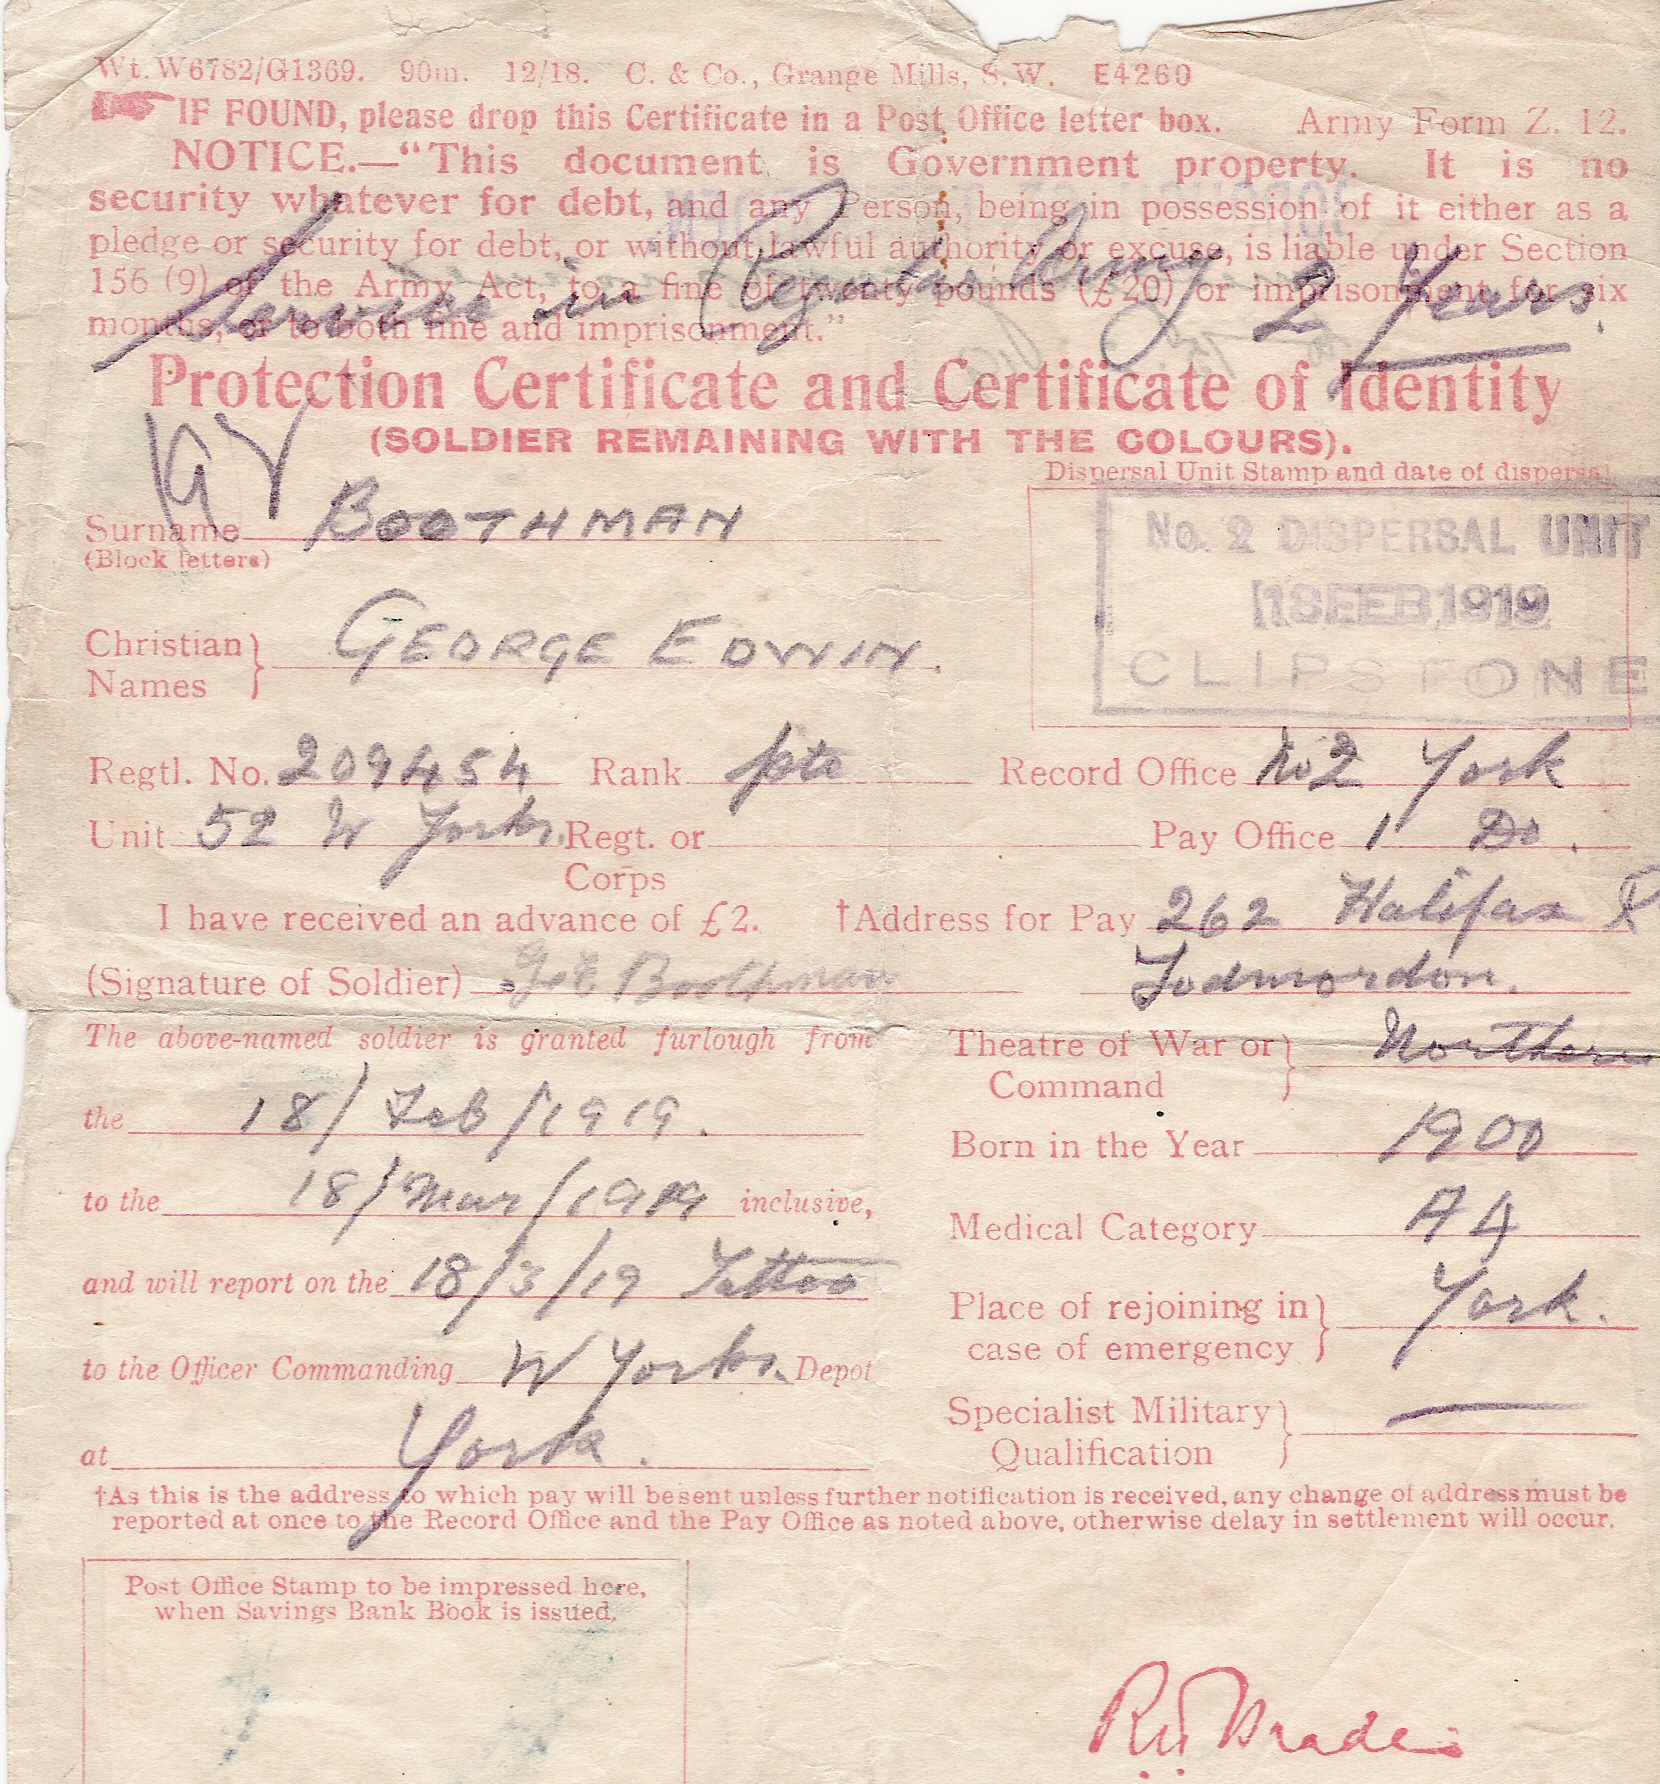 Wt. W6782/G1369. 90m. 12/18. C. & Co., Grange Mills, S.W. E4260
IF FOUND, please drop this Certificate in a Post Office letter box. Army Form Z. 12.
NOTICE.—“This document is Government property. It is no
security whatever for debt, and any Person, being in possession of it either as a
pledge or security for debt, or without lawful authority or excuse, is liable under Section
156 (9) of the Army Act, to a fine of twenty pounds (£20) or imprisonment for six
months, or to both fine and imprisonment.”
Service in Regular Army 2 Years.
Protection Certificate and Certificate of Identity
(SOLDIER REMAINING WITH THE COLOURS).
Dispersal Unit Stamp and date of dispersal.
No. 2 DISPERSAL UNIT
18 FEB 1919
CLIPSTONE
Surname BOOTHMAN
(Block letters)
Christian Names } GEORGE EDWIN.
Regtl. No. 209454 Rank pte Record Office No 2 York
Unit 52 W Yorks. Regt. or Corps Pay Office 1 Do.
I have received an advance of £2. †Address for Pay 262 Halifax R
(Signature of Soldier) G. E. Boothman Todmordon.
The above-named soldier is granted furlough from
the 18/Feb/1919.
to the 18/Mar/1919 inclusive,
and will report on the 18/3/19 Tattoo
to the Officer Commanding W Yorks. Depot
at York.
Theatre of War or Command } Northern
Born in the Year 1900
Medical Category A4
Place of rejoining in case of emergency } York.
Specialist Military Qualification } —
†As this is the address to which pay will be sent unless further notification is received, any change of address must be
reported at once to the Record Office and the Pay Office as noted above, otherwise delay in settlement will occur.
Post Office Stamp to be impressed here,
when Savings Bank Book is issued.